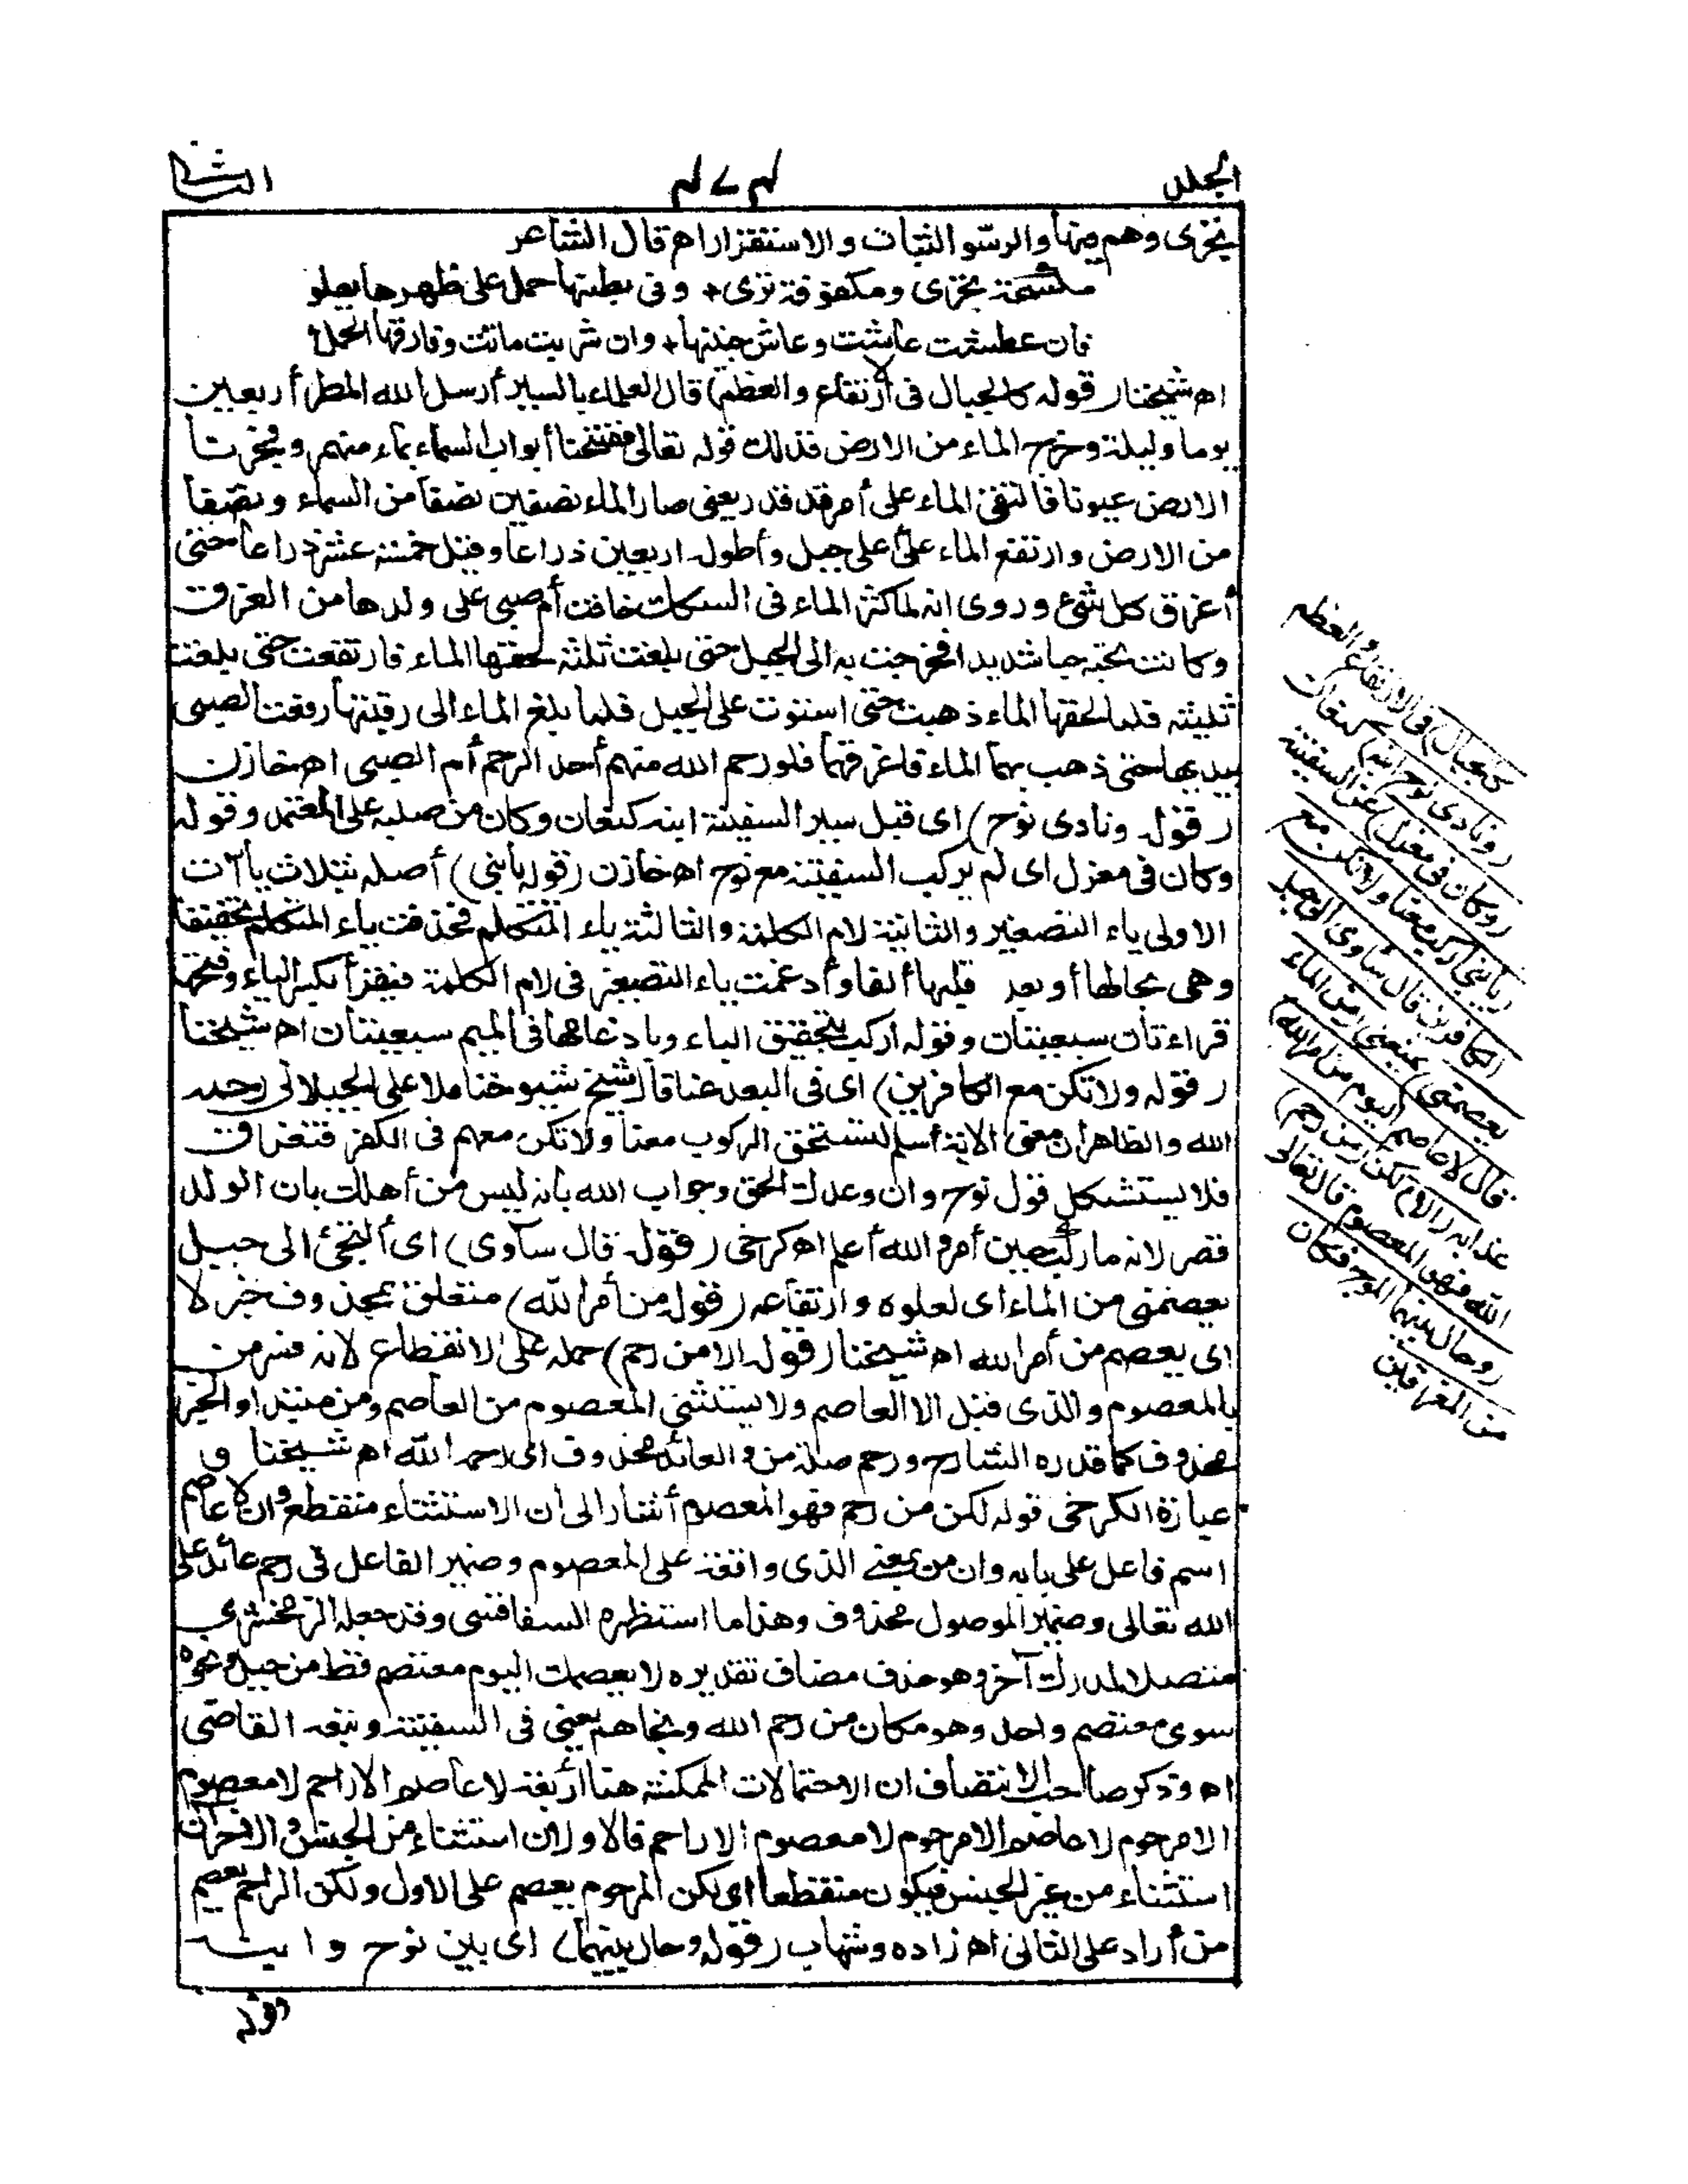 الجلد
٤٧٤
الثانى
تجرى وهم فيها والرسو الثبات والاستقرار اه قال الشاعر
تجرى ومكفوفة ترى + وفى بطنها حمل على ظهرها يعلو
فان عطشت عاشت وعاش جنينها + وان شربت ماتت وفارقها الحمل
اه شيخنا (قوله كالجبال فى الارتفاع والعظم) قال العلماء بالسير أرسل الله المطر أربعين
يوما وليلة وخرج الماء من الارض فذلك قوله تعالى ففتحنا أبواب السماء بماء منهمر وفجرنا
الارض عيونا فالتقى الماء على أمر قد قدر يعنى صار الماء نصفين نصفا من السماء ونصفا
من الارض وارتفع الماء على أعلى جبل وأطوله اربعين ذراعا وقيل خمسة عشر ذراعا حتى
أغرق كل شئ وروى انه لما كثر الماء فى السكك خافت أم صبى على ولدها من الغرق
وكانت تحبه حبا شديدا فخرجت به الى الجبل حتى بلغت ثلثه لحقها الماء فارتفعت حتى بلغت
ثلثيه فلما لحقها الماء ذهبت حتى استوت على الجبل فلما بلغ الماء الى رقبتها رفعت الصبى
بيديها حتى ذهب بهما الماء فاغرقهما فلو رحم الله منهم أحدا لرحم أم الصبى اه خازن
(قوله ونادى نوح) اى قبل سير السفينة ابنه كنعان وكان من صلبه على المعتمد وقوله
وكان فى معزل اى لم يركب السفينة مع نوح اه خازن (قوله يا بنى) أصله بثلاث يا آت
الاولى ياء التصغير والثانية لام الكلمة والثالثة ياء المتكلم فحذفت ياء المتكلم تخفيفا
وهى بحالها أو بعد قلبها ألفا وأدغمت ياء التصغير فى لام الكلمة فيقرأ بكسر الياء وفتحها
قراءتان سبعيتان وقوله اركب بتحقيق الباء وبادغامها فى الميم سبعيتان اه شيخنا
(قوله ولا تكن مع الكافرين) اى فى البعد عنا قال شيخ شيوخنا ملا على الجيلانى رحمه
الله والظاهر ان معنى الاية أسلم لتستحق الركوب معنا ولا تكن معهم فى الكفر فتغرق
فلا يستشكل قول نوح وان وعدك الحق وجواب الله بانه ليس من أهلك بان الولد
قصر لانه ما ركب حين أمره والله أعلم اه كرخى (قوله قال سآوى) اى ألتجئ الى جبل
يعصمنى من الماء اى لعلوه وارتفاعه (قوله من أمر الله) متعلق بمحذوف خبر لا
اى يعصم من أمر الله اه شيخنا (قوله الا من رحم) حمله على الانقطاع لانه فسر من
بالمعصوم والذى قبل الا العاصم ولا يستثنى المعصوم من العاصم ومن مبتدا والخبر
محذوف كما قدره الشارح ورحم صلة من والعائد محذوف اى رحمه الله اه شيخنا و
عبارة الكرخى قوله لكن من رحم فهو المعصوم أشار الى أن الاستثناء منقطع وان لا عاصم
اسم فاعل على بابه وان من بمعنى الذى واقعة على المعصوم وضمير الفاعل فى رحم عائد على
الله تعالى وضمير الموصول محذوف وهذا ما استظهره السفاقسى وقد جعله الزمخشرى
متصلا لمدرك آخر وهو حذف مضاف تقديره لا يعصمك اليوم معتصم قط من جبل ونحوه
سوى معتصم واحد وهو مكان من رحم الله ونجاهم يعنى فى السفينة وتبعه القاضى
اه وذكر صاحب الانتصاف ان الاحتمالات الممكنة هنا أربعة لا عاصم الا راحم لا معصوم
الا مرحوم لا عاصم الا مرحوم لا معصوم الا راحم فالاولان استثناء من الجنس والاخران
استثناء من غير الجنس فيكون منقطعا اى لكن المرحوم يعصم على الاول ولكن الراحم يعصم
من أراد على الثانى اه زاده وشهاب (قوله وحال بينهما) اى بين نوح وابنه
كالجبال) فى الارتفاع والعظم
(ونادى نوح ابنه) كنعان
(وكان فى معزل) عن السفينة
(يا بنى اركب معنا ولا تكن مع
الكافرين قال سآوى الى جبل
يعصمنى) يمنعنى (من الماء
قال لا عاصم اليوم من أمر الله)
عذابه (الا) لكن (من رحم)
الله فهو المعصوم قال تعالى
(وحال بينهما الموج فكان
من المغرقين